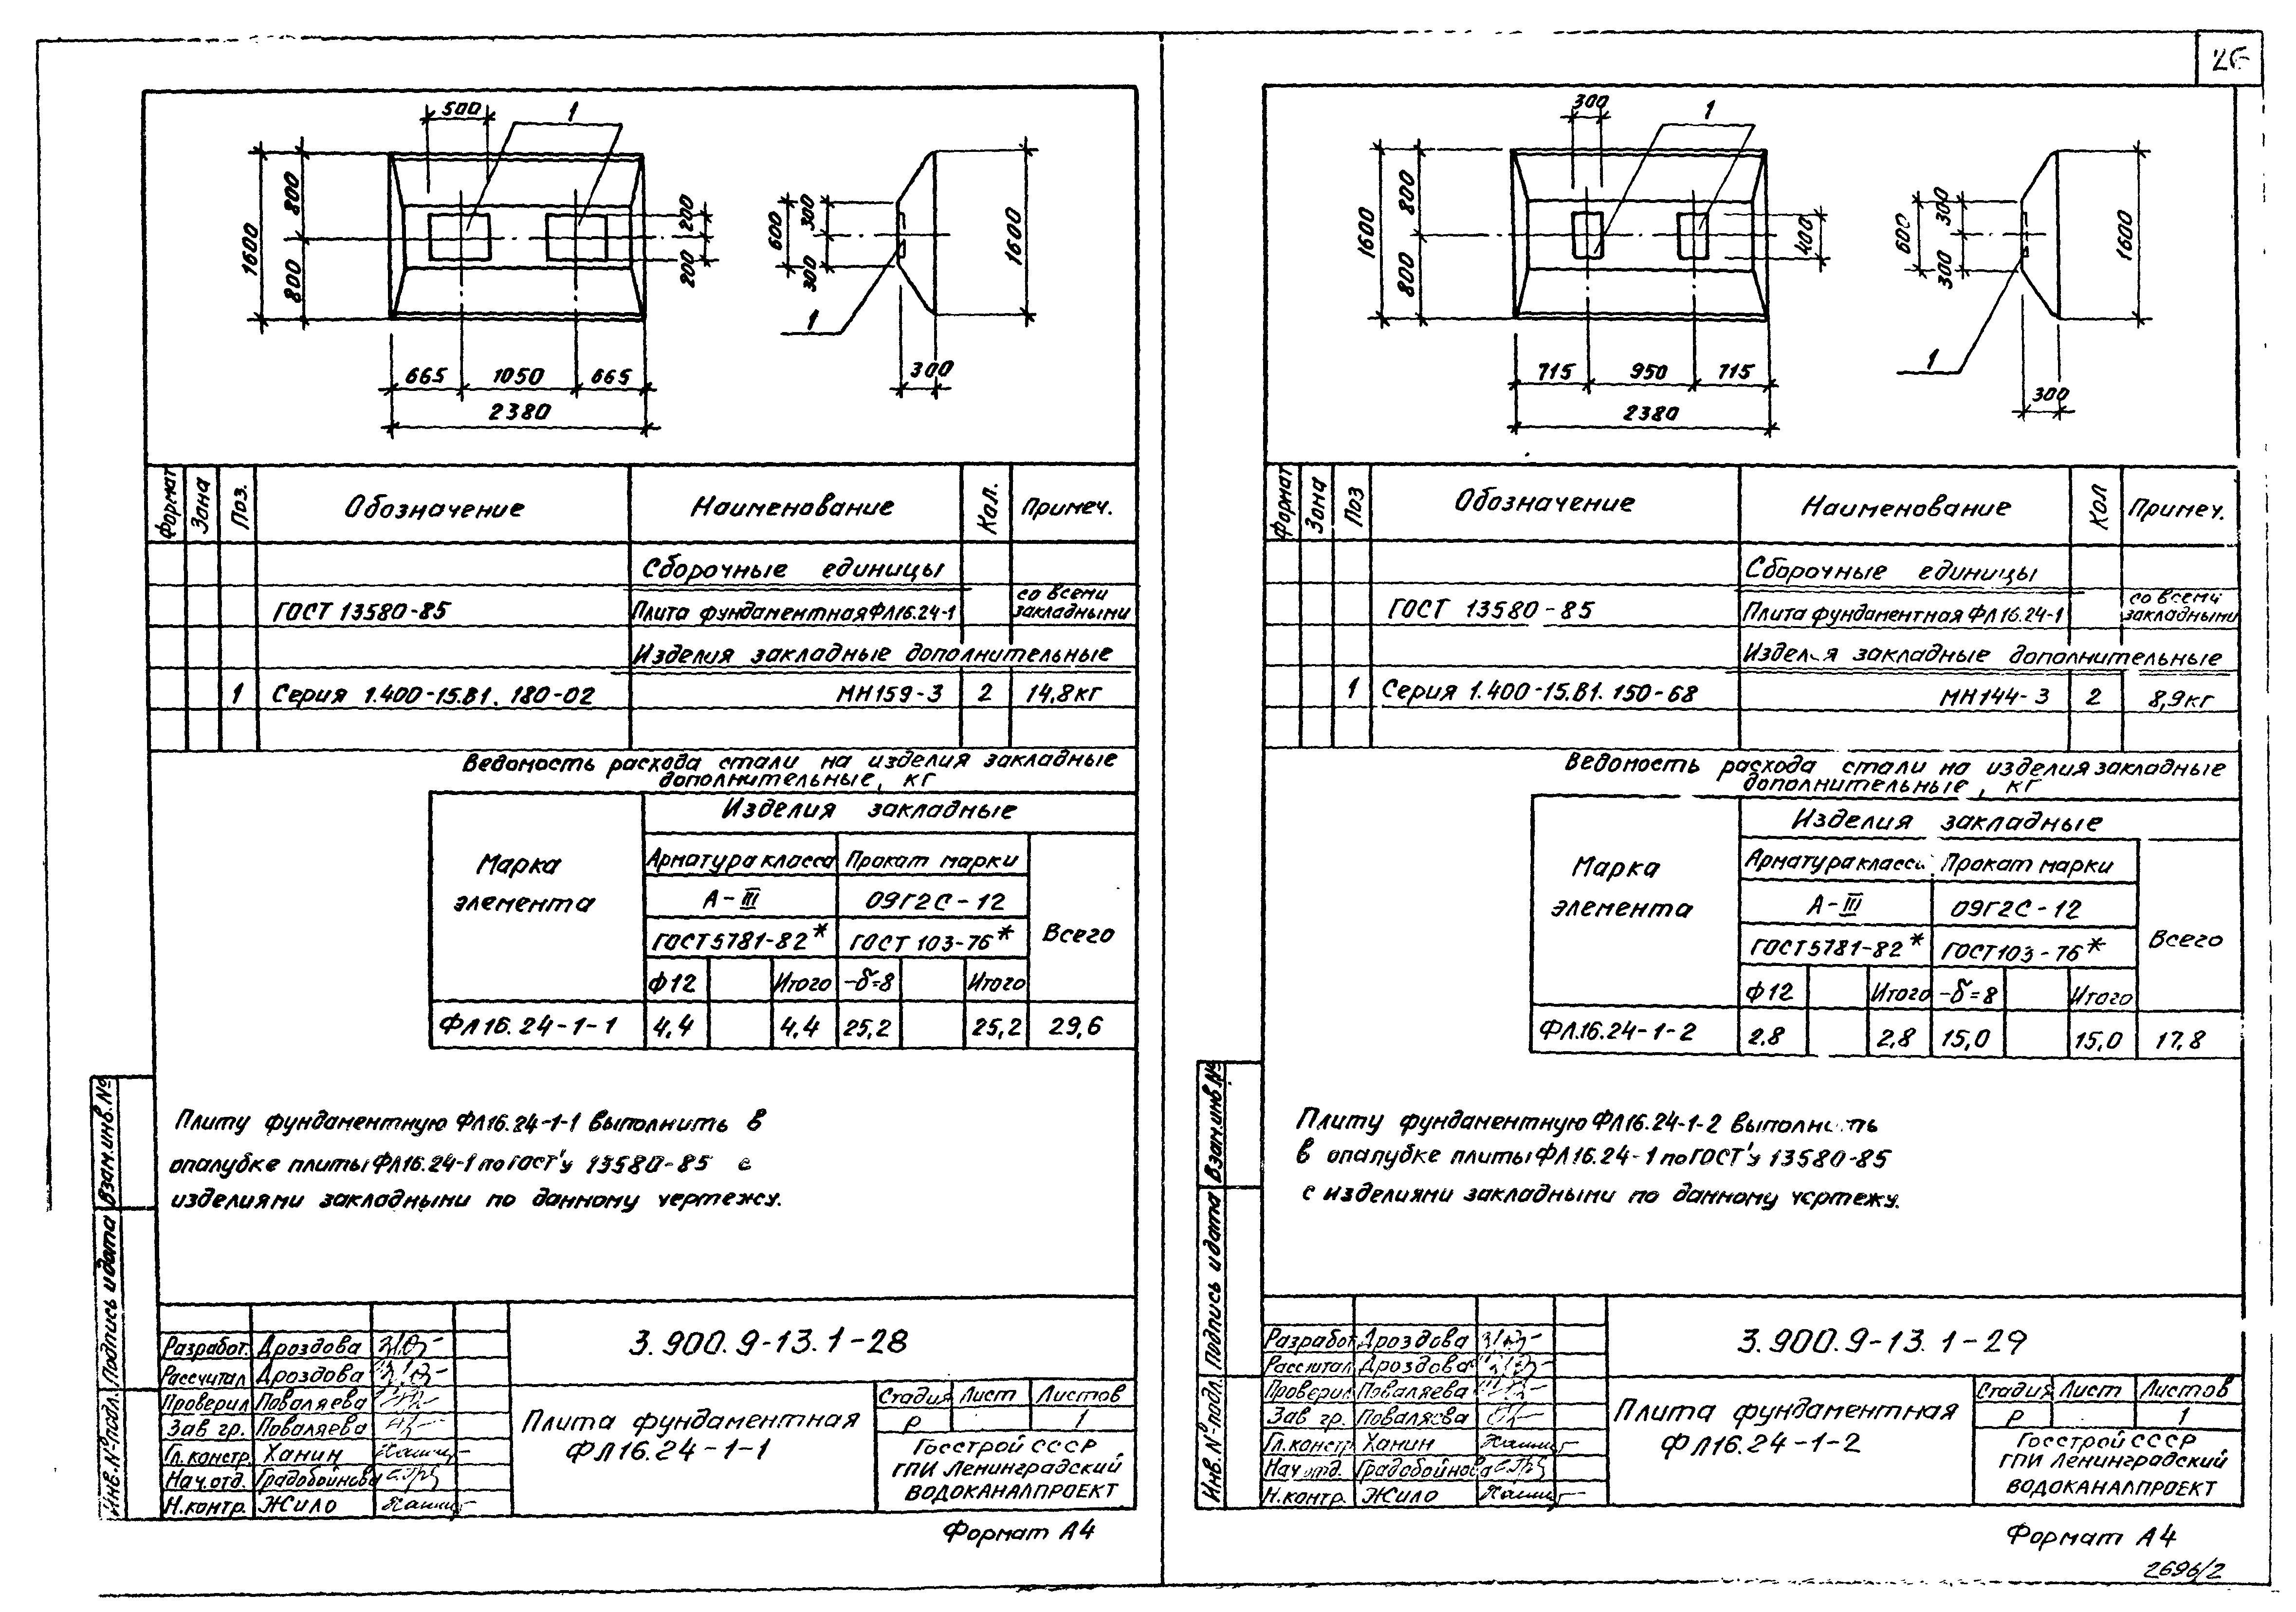 26
500
1
1600
800
800
200
200
600
300
300
1600
1
665
1050
665
2380
300
Формат
Зона
Поз.
Обозначение
Наименование
Кол.
Примеч.
Сборочные единицы
ГОСТ 13580-85
Плита фундаментная ФЛ16.24-1
со всеми
закладными
Изделия закладные дополнительные
1 Серия 1.400-15.В1. 180-02 МН159-3 2 14,8кг
Ведомость расхода стали на изделия закладные
дополнительные, кг
Марка
элемента
Изделия закладные
Арматура класса Прокат марки
А-III 09Г2С-12
ГОСТ 5781-82* ГОСТ 103-76*
Всего
ф12 Итого -δ=8 Итого
ФЛ16.24-1-1 4,4 4,4 25,2 25,2 29,6
Плиту фундаментную ФЛ16.24-1-1 выполнить в
опалубке плиты ФЛ16.24-1 по ГОСТ'у 13580-85 с
изделиями закладными по данному чертежу.
Взам.инв.№
Подпись и дата
Инв.№подл.
Разработ. Дроздова
Рассчитал Дроздова
Проверил Поваляева
Зав гр. Поваляева
Гл.констр. Ханин
Нач.отд. Градобойнова
Н.контр. Жило
3.900.9-13.1-28
Плита фундаментная
ФЛ16.24-1-1
Стадия Лист Листов
Р 1
Госстрой СССР
ГПИ Ленинградский
ВОДОКАНАЛПРОЕКТ
Формат А4
300
1
1600
800
800
400
600
300
300
1600
1
715
950
715
2380
300
Формат
Зона
Поз
Обозначение
Наименование
Кол
Примеч.
Сборочные единицы
ГОСТ 13580-85
Плита фундаментная ФЛ16.24-1
со всеми
закладными
Изделия закладные дополнительные
1 Серия 1.400-15.В1. 150-68 МН144-3 2 8,9кг
Ведомость расхода стали на изделия закладные
дополнительные, кг
Марка
элемента
Изделия закладные
Арматура класса Прокат марки
А-III 09Г2С-12
ГОСТ 5781-82* ГОСТ 103-76*
Всего
ф12 Итого -δ=8 Итого
ФЛ.16.24-1-2 2,8 2,8 15,0 15,0 17,8
Плиту фундаментную ФЛ16.24-1-2 выполнить
в опалубке плиты ФЛ16.24-1 по ГОСТ'у 13580-85
с изделиями закладными по данному чертежу.
Взам.инв.№
Подпись и дата
Инв.№подл.
Разработ. Дроздова
Рассчитал Дроздова
Проверил Поваляева
Зав гр. Поваляева
Гл.констр Ханин
Нач отд. Градобойнова
Н.контр. Жило
3.900.9-13.1-29
Плита фундаментная
ФЛ16.24-1-2
Стадия Лист Листов
Р 1
Госстрой СССР
ГПИ Ленинградский
ВОДОКАНАЛПРОЕКТ
Формат А4
2696/2